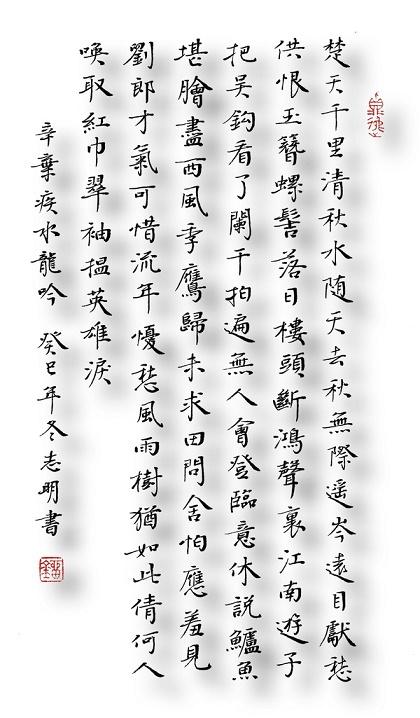 楚天千里清秋水随天去秋無際遥岑遠目獻愁
供恨玉簪螺髻落日樓頭斷鴻聲裏江南遊子
把吴鈎看了闌干拍遍無人會登臨意休説鱸魚
堪膾盡西風季鷹歸未求田問舍怕應羞見
劉郎才氣可惜流年憂愁風雨樹猶如此倩何人
喚取紅巾翠袖搵英雄淚
辛棄疾水龍吟 癸巳年冬志明書